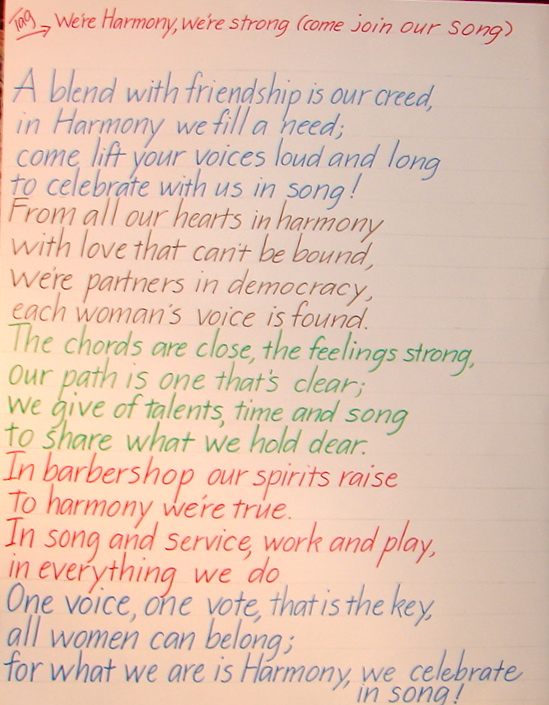 Tag → We're Harmony, we're strong (come join our song)
A blend with friendship is our creed,
in Harmony we fill a need;
come lift your voices loud and long
to celebrate with us in song!
From all our hearts in harmony
with love that can't be bound,
we're partners in democracy,
each woman's voice is found.
The chords are close, the feelings strong,
our path is one that's clear;
we give of talents, time and song
to share what we hold dear.
In barbershop our spirits raise
To harmony we're true.
In song and service, work and play,
in everything we do
One voice, one vote, that is the key,
all women can belong;
for what we are is Harmony, we celebrate
in song!